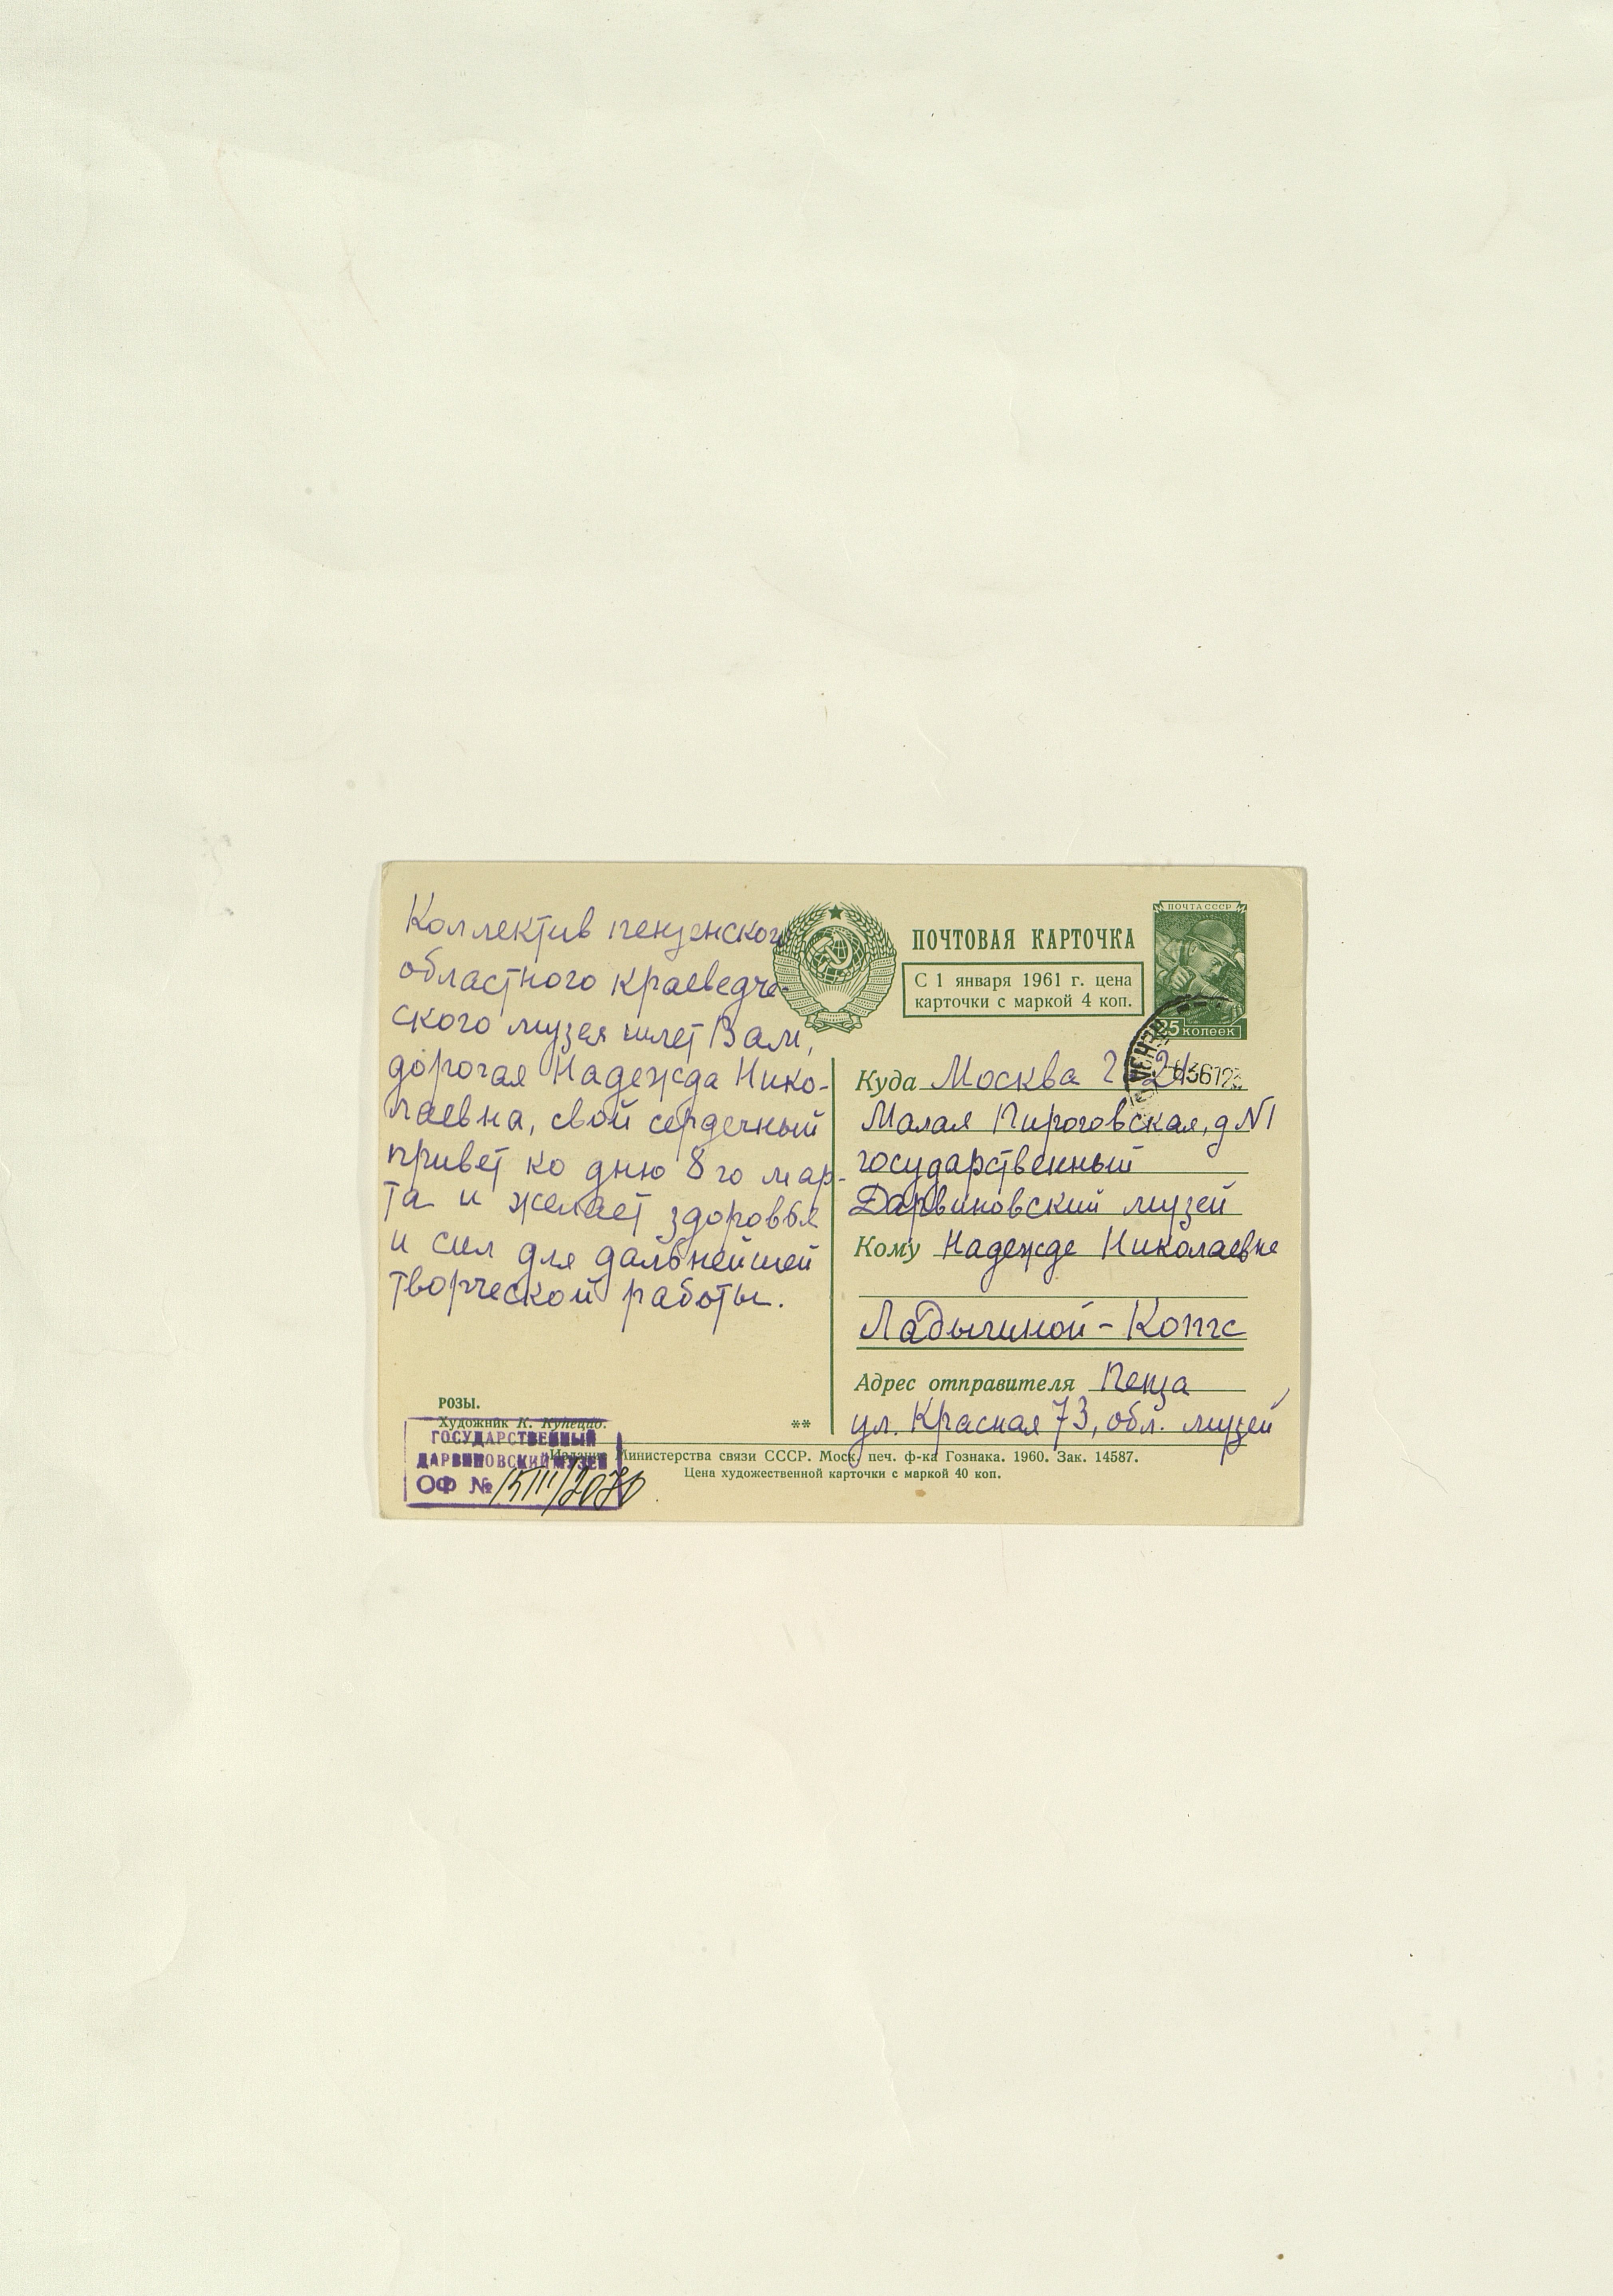 Коллектив пензенского
областного краеведче-
ского музея шлет Вам,
дорогая Надежда Нико-
лаевна, свой сердечный
привет ко дню 8го мар-
та и желает здоровья
и сил для дальнейшей
творческой работы.
РОЗЫ.
Художник К.
ГОСУДАРСТВЕННЫЙ
ДАРВИНОВСКИЙ МУЗЕЙ
ОФ №
ПОЧТА СССР
25 копеек
ПОЧТОВАЯ КАРТОЧКА
С 1 января 1961 г. цена
карточки с маркой 4 коп.
ПЕНЗА
Куда Москва
Малая Пироговская, д N1
государственный
Дарвиновский музей
Кому Надежде Николаевне
Ладыгиной - Котс
Адрес отправителя Пенза
ул. Красная 73, обл. музей
**
Издание Министерства связи СССР. Моск. печ. ф-ка Гознака. 1960. Зак. 14587.
Цена художественной карточки с маркой 40 коп.